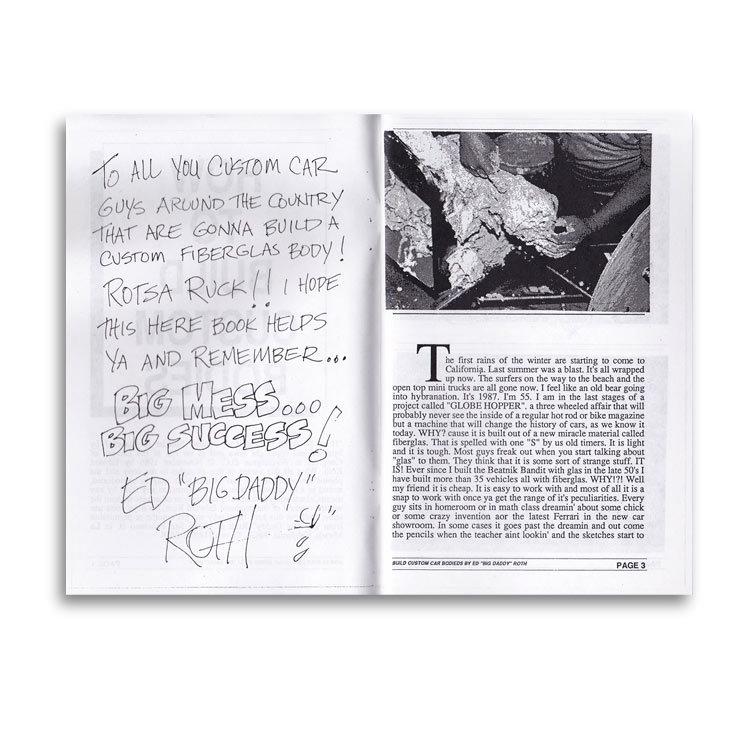 TO ALL YOU CUSTOM CAR
GUYS AROUND THE COUNTRY
THAT ARE GONNA BUILD A
CUSTOM FIBERGLAS BODY!
ROTSA RUCK!! I HOPE
THIS HERE BOOK HELPS
YA AND REMEMBER...
BIG MESS...
BIG SUCCESS!
ED "BIG DADDY"
ROTH
The first rains of the winter are starting to come to
California. Last summer was a blast. It's all wrapped
up now. The surfers on the way to the beach and the
open top mini trucks are all gone now. I feel like an old bear going
into hybranation. It's 1987. I'm 55. I am in the last stages of a
project called "GLOBE HOPPER". a three wheeled affair that will
probably never see the inside of a regular hot rod or bike magazine
but a machine that will change the history of cars, as we know it
today. WHY? cause it is built out of a new miracle material called
fiberglas. That is spelled with one "S" by us old timers. It is light
and it is tough. Most guys freak out when you start talking about
"glas" to them. They think that it is some sort of strange stuff. IT
IS! Ever since I built the Beatnik Bandit with glas in the late 50's I
have built more than 35 vehicles all with fiberglas. WHY!?! Well
my friend it is cheap. It is easy to work with and most of all it is a
snap to work with once ya get the range of it's peculiarities. Every
guy sits in homeroom or in math class dreamin' about some chick
or some crazy invention aor the latest Ferrari in the new car
showroom. In some cases it goes past the dreamin and out come
the pencils when the teacher aint lookin' and the sketches start to
BUILD CUSTOM CAR BODIEDS BY ED "BIG DADDY" ROTH
PAGE 3